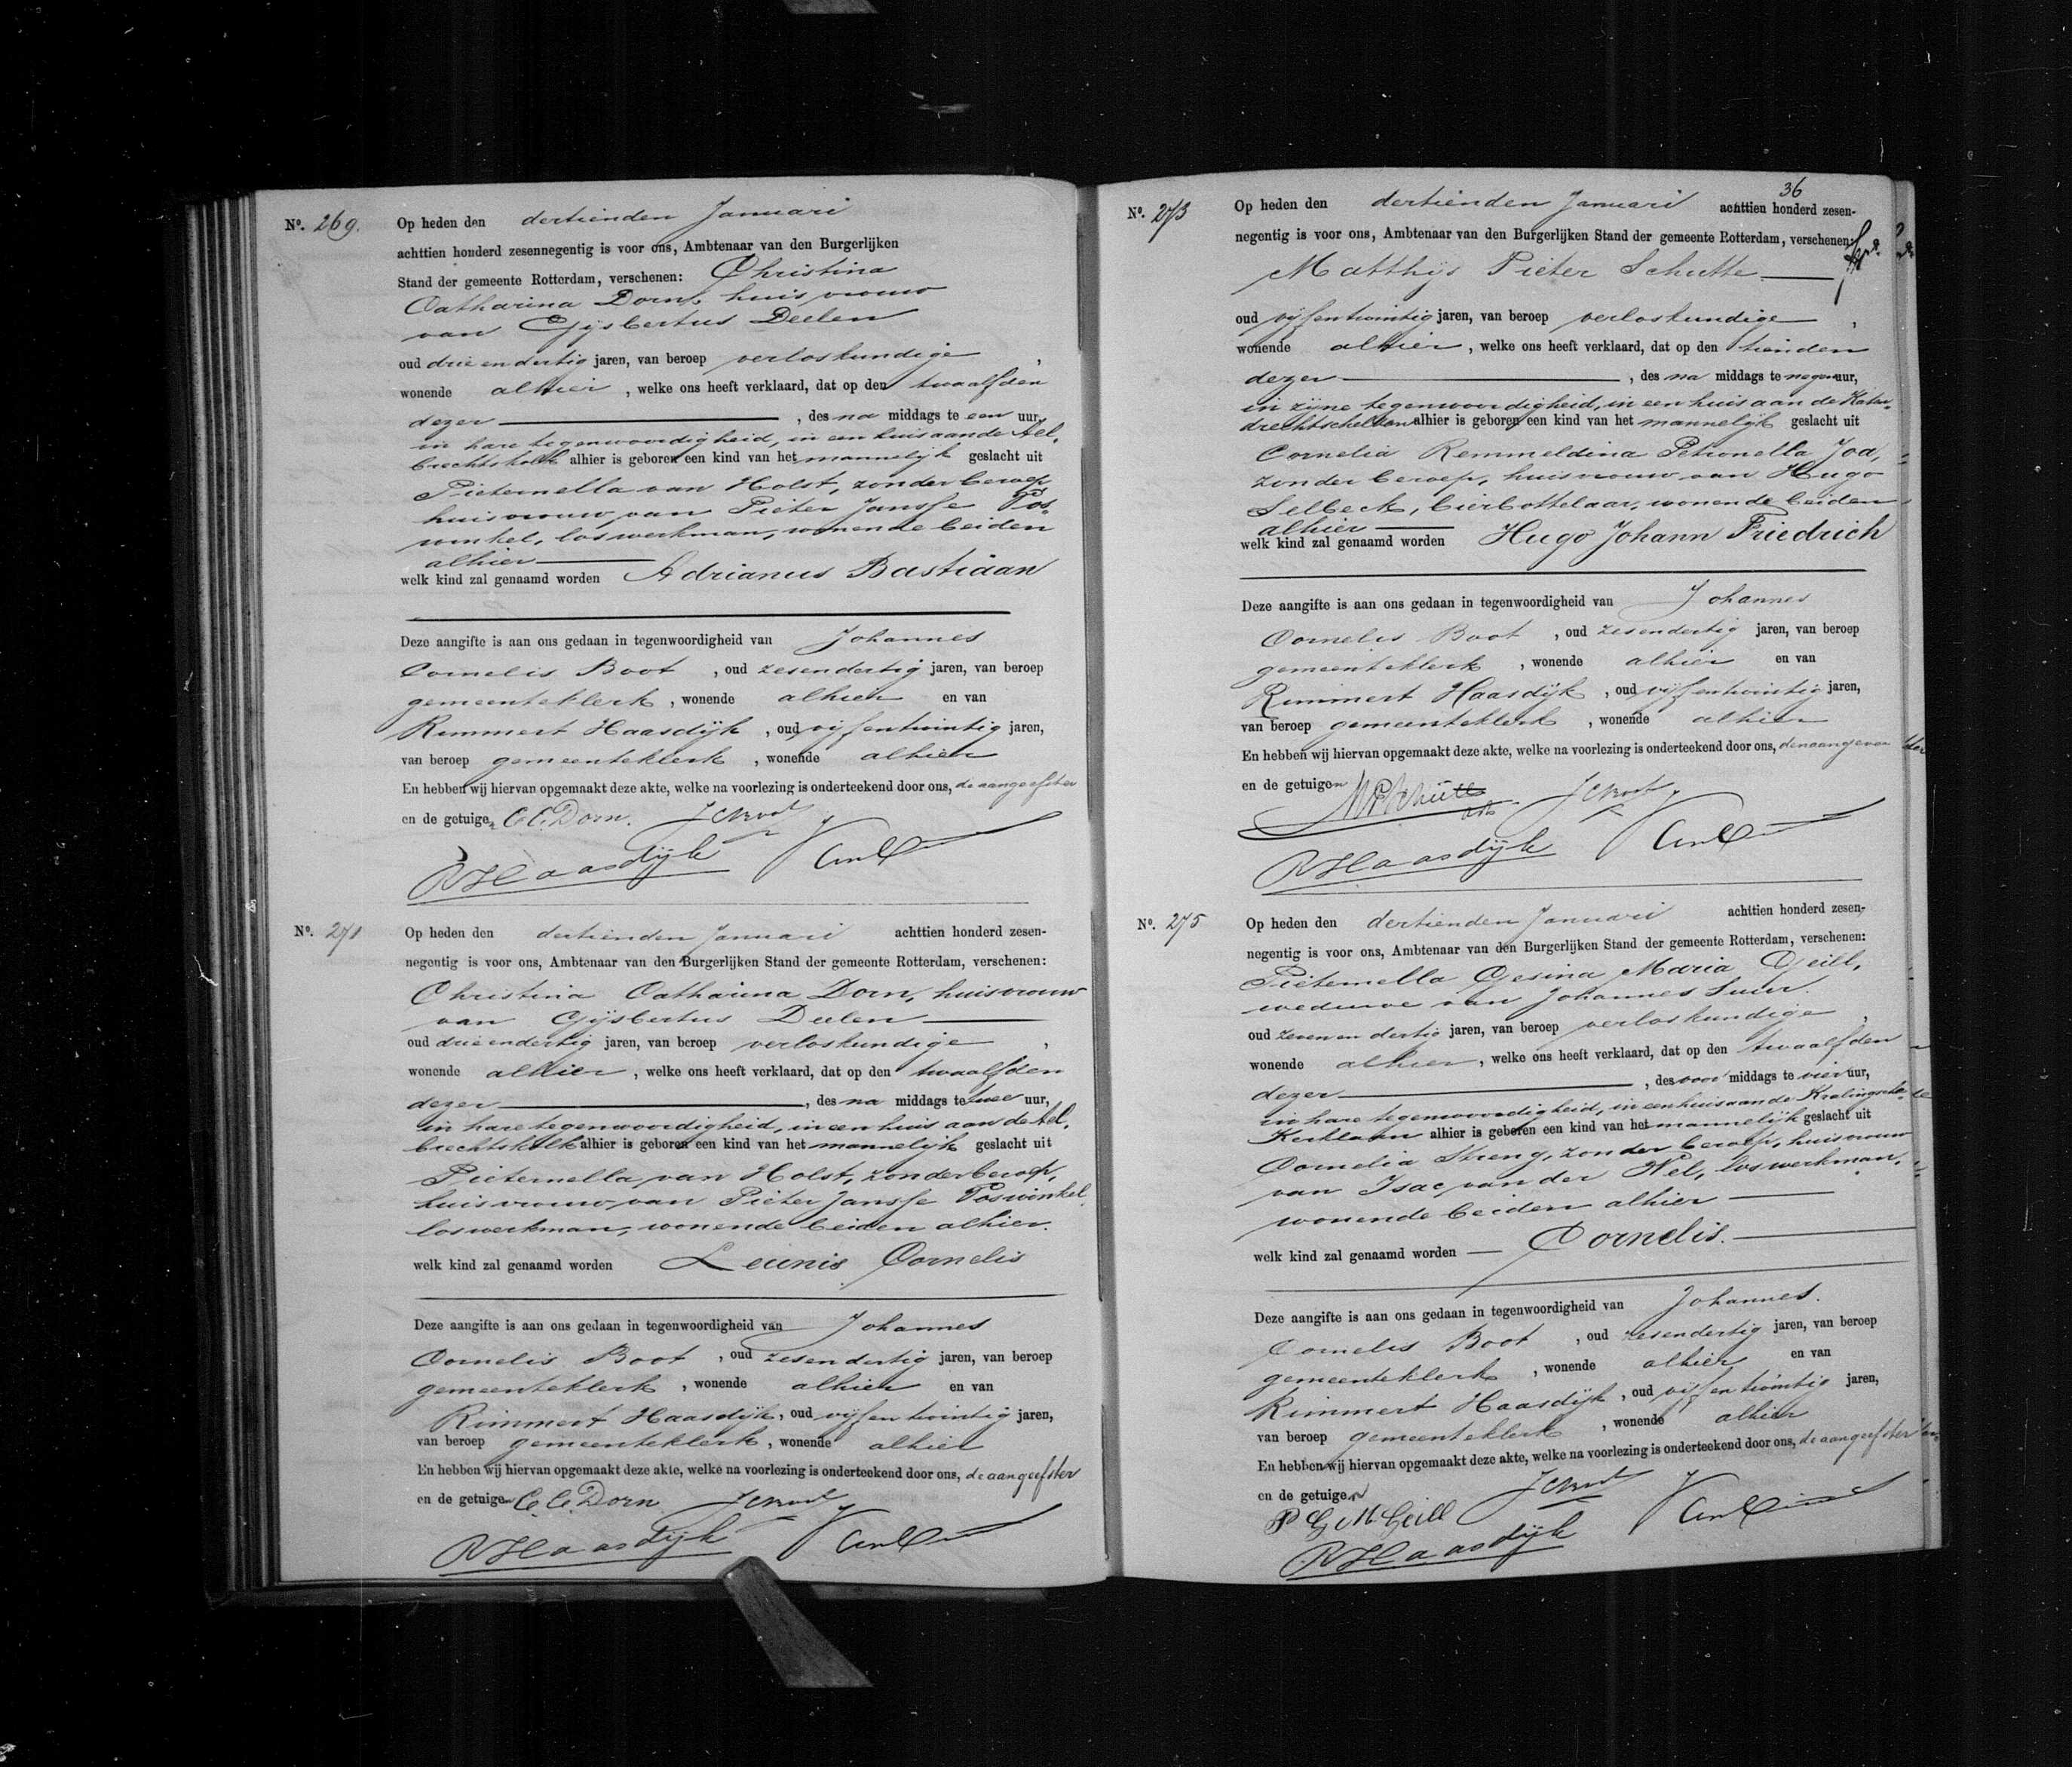 Nº. 269. Op heden den dertienden Januari
achttien honderd zesennegentig is voor ons, Ambtenaar van den Burgerlijken
Stand der gemeente Rotterdam, verschenen: Christina
Catharina Dorn, huisvrouw
van Gijsbertus Deelen
oud drie en dertig jaren, van beroep verloskundige,
wonende alhier, welke ons heeft verklaard, dat op den twaalfden
dezer, des na middags te een uur,
in hare tegenwoordigheid, in een huis aan de Ael-
brechtskolk alhier is geboren een kind van het mannelijk geslacht uit
Pieternella van Holst, zonder beroep,
huisvrouw van Pieter Jansse Pos-
winkel, loswerkman, wonende beiden
alhier
welk kind zal genaamd worden Adrianus Bastiaan
Deze aangifte is aan ons gedaan in tegenwoordigheid van Johannes
Cornelis Boot, oud zesendertig jaren, van beroep
gemeenteklerk, wonende alhier en van
Rimmert Haasdijk, oud vijfentwintig jaren,
van beroep gemeenteklerk, wonende alhier
En hebben wij hiervan opgemaakt deze akte, welke na voorlezing is onderteekend door ons, de aangeefster
en de getuigen C. C. Dorn. JCBoot
RHaasdijk
Nº. 271 Op heden den dertienden Januari achttien honderd zesen-
negentig is voor ons, Ambtenaar van den Burgerlijken Stand der gemeente Rotterdam, verschenen:
Christina Catharina Dorn, huisvrouw
van Gijsbertus Deelen
oud drie en dertig jaren, van beroep verloskundige,
wonende alhier, welke ons heeft verklaard, dat op den twaalfden
dezer, des na middags te twee uur,
in hare tegenwoordigheid, in een huis aan de Ael-
brechtskolk alhier is geboren een kind van het mannelijk geslacht uit
Pieternella van Holst, zonder beroep,
huisvrouw van Pieter Jansse Poswinkel,
loswerkman, wonende beiden alhier.
welk kind zal genaamd worden Leunis Cornelis
Deze aangifte is aan ons gedaan in tegenwoordigheid van Johannes
Cornelis Boot, oud zesendertig jaren, van beroep
gemeenteklerk, wonende alhier en van
Rimmert Haasdijk, oud vijfentwintig jaren,
van beroep gemeenteklerk, wonende alhier
En hebben wij hiervan opgemaakt deze akte, welke na voorlezing is onderteekend door ons, de aangeefster
en de getuigen C. C. Dorn JCBoot
RHaasdijk
36
Nº. 273 Op heden den dertienden Januari achttien honderd zesen-
negentig is voor ons, Ambtenaar van den Burgerlijken Stand der gemeente Rotterdam, verschenen:
Matthijs Pieter Schutte
oud vijfentwintig jaren, van beroep verloskundige,
wonende alhier, welke ons heeft verklaard, dat op den tienden
dezer, des na middags te negen uur,
in zijne tegenwoordigheid, in een huis aan de Katen-
drechtschelaan alhier is geboren een kind van het mannelijk geslacht uit
Cornelia Remmeldina Petronella Joa,
zonder beroep, huisvrouw van Hugo
Selbeck, bierbottelaar, wonende beiden
alhier
welk kind zal genaamd worden Hugo Johann Friedrich
Deze aangifte is aan ons gedaan in tegenwoordigheid van Johannes
Cornelis Boot, oud zesendertig jaren, van beroep
gemeenteklerk, wonende alhier en van
Rimmert Haasdijk, oud vijfentwintig jaren,
van beroep gemeenteklerk, wonende alhier
En hebben wij hiervan opgemaakt deze akte, welke na voorlezing is onderteekend door ons, den aangever
en de getuigen MPSchutte JCBoot
RHaasdijk
Nº. 275 Op heden den dertienden Januari achttien honderd zesen-
negentig is voor ons, Ambtenaar van den Burgerlijken Stand der gemeente Rotterdam, verschenen:
Pieternella Gesina Maria Geill,
weduwe van Johannes Suur.
oud zeven en dertig jaren, van beroep verloskundige,
wonende alhier, welke ons heeft verklaard, dat op den twaalfden
dezer, des voor middags te vier uur,
in hare tegenwoordigheid, in een huis aan de Kralingsche
Kerklaan alhier is geboren een kind van het mannelijk geslacht uit
Cornelia Streng, zonder beroep, huisvrouw
van Isac van der Wel, loswerkman,
wonende beiden alhier
welk kind zal genaamd worden Cornelis.
Deze aangifte is aan ons gedaan in tegenwoordigheid van Johannes.
Cornelis Boot, oud zesendertig jaren, van beroep
gemeenteklerk, wonende alhier en van
Rimmert Haasdijk, oud vijfentwintig jaren,
van beroep gemeenteklerk, wonende alhier
En hebben wij hiervan opgemaakt deze akte, welke na voorlezing is onderteekend door ons, de aangeefster
en de getuigen JCBoot
P G M Geill
RHaasdijk